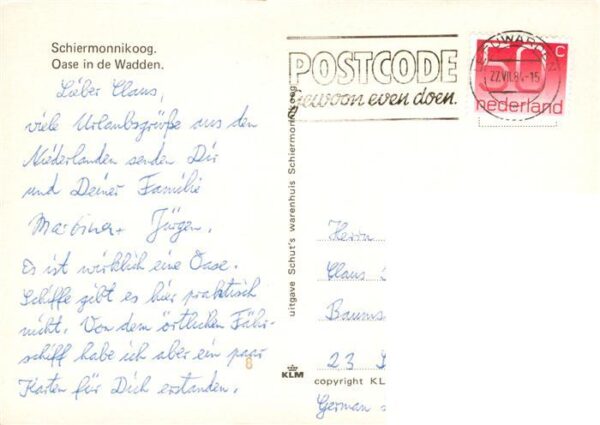 Schiermonnikoog.
Oase in de Wadden.
Lieber Claus,
viele Urlaubsgrüße aus den
Niederlanden senden Dir
und Deiner Familie
Martina + Jürgen.
Es ist wirklich eine Oase.
Schiffe gibt es hier praktisch
nicht. Von dem örtlichen Fähr-
schiff habe ich aber ein paar
Karten für Dich erstanden.
8
uitgave Schut's warenhuis Schiermonnikoog
POSTCODE
gewoon even doen.
27.VII.8 -15
50 C
nederland
Herrn
Claus
Baums
23
KLM
copyright KL
German